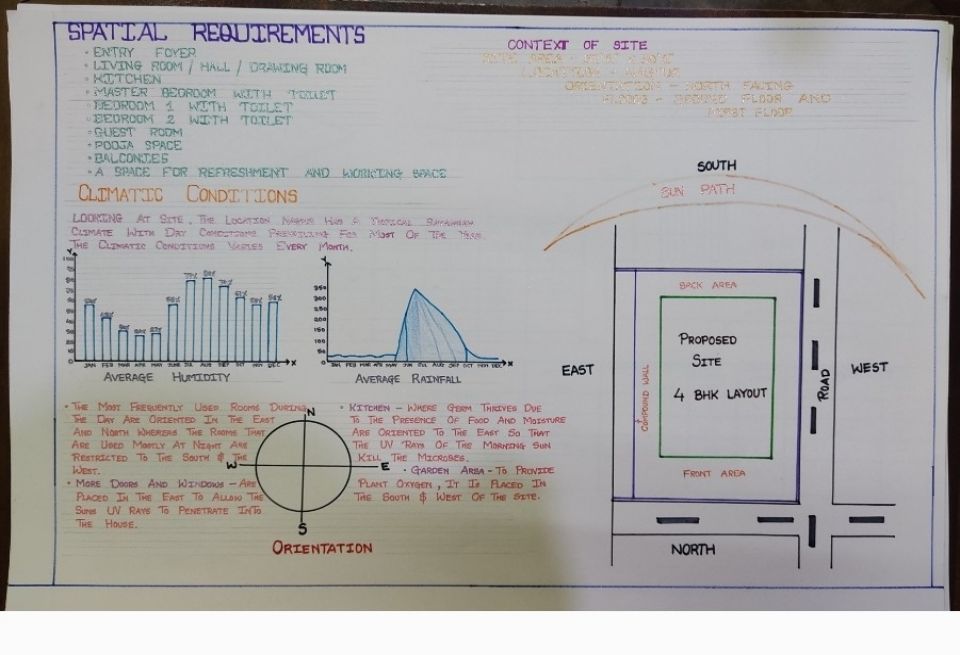 SPATIAL REQUIREMENTS
• ENTRY FOYER
• LIVING ROOM / HALL / DRAWING ROOM
• KITCHEN
• MASTER BEDROOM WITH TOILET
• BEDROOM 1 WITH TOILET
• BEDROOM 2 WITH TOILET
• GUEST ROOM
• POOJA SPACE
• BALCONIES
• A SPACE FOR REFRESHMENT AND WORKING SPACE
CONTEXT OF SITE
SITE AREA -
LOCATION - NAGPUR
ORIENTATION - NORTH FACING
FLOORS - GROUND FLOOR AND
FIRST FLOOR
CLIMATIC CONDITIONS
LOOKING AT SITE, THE LOCATION NAGPUR HAS A TROPICAL SAVANNAH
CLIMATE WITH DAY CONDITIONS PREVAILING FOR MOST OF THE YEAR.
THE CLIMATIC CONDITIONS VARIES EVERY MONTH.
Y
X
JAN FEB MAR APR MAY JUNE JUL AUG SEP OCT NOV DEC
AVERAGE HUMIDITY
Y
350
300
250
200
150
100
50
0
X
JAN FEB MAR APR MAY JUN JUL AUG SEP OCT NOV DEC
AVERAGE RAINFALL
• THE MOST FREQUENTLY USED ROOMS DURING
THE DAY ARE ORIENTED IN THE EAST
AND NORTH WHEREAS THE ROOMS THAT
ARE USED MOSTLY AT NIGHT ARE
RESTRICTED TO THE SOUTH & THE
WEST.
• MORE DOORS AND WINDOWS - ARE
PLACED IN THE EAST TO ALLOW THE
SUNS UV RAYS TO PENETRATE INTO
THE HOUSE.
N
W
E
S
ORIENTATION
• KITCHEN - WHERE GERM THRIVES DUE
TO THE PRESENCE OF FOOD AND MOISTURE
ARE ORIENTED TO THE EAST SO THAT
THE UV RAYS OF THE MORNING SUN
KILL THE MICROBES.
• GARDEN AREA - TO PROVIDE
PLANT OXYGEN, IT IS PLACED IN
THE SOUTH & WEST OF THE SITE.
SOUTH
SUN PATH
BACK AREA
PROPOSED
SITE
4 BHK LAYOUT
EAST
COMPOUND WALL
ROAD
WEST
FRONT AREA
NORTH